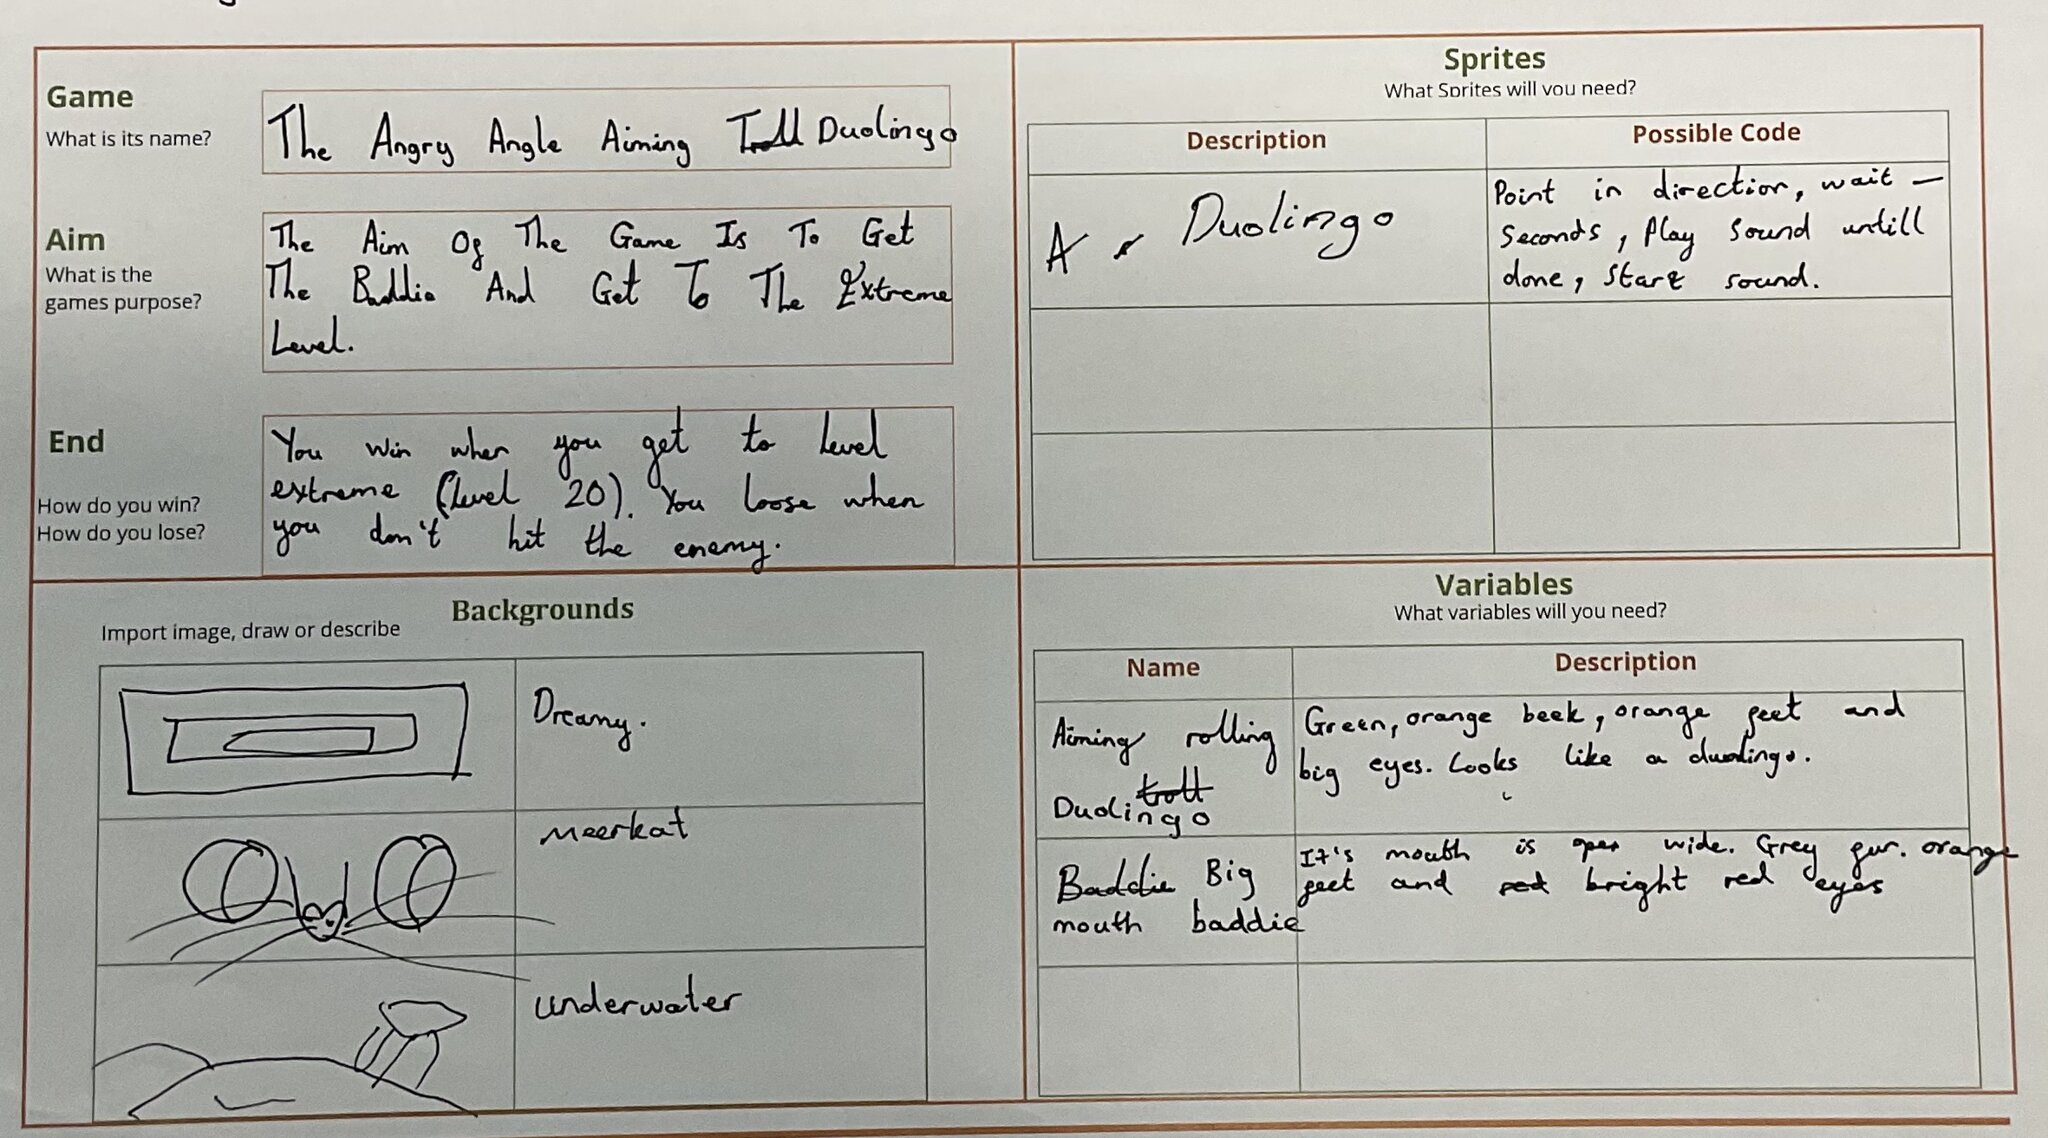 Game
What is its name?
The Angry Angle Aiming Troll Duolingo
Aim
What is the
games purpose?
The Aim Of The Game Is To Get
The Baddie And Get To The Extreme
Level.
End
How do you win?
How do you lose?
You win when you get to level
extreme (level 20). You loose when
you don't hit the enemy.
Sprites
What Sprites will you need?
Description
Possible Code
A Duolingo
Point in direction, wait –
seconds, Play sound untill
done, start sound.
Backgrounds
Import image, draw or describe
Dreamy.
meerkat
underwater
Variables
What variables will you need?
Name
Description
Aiming rolling
troll
Duolingo
Green, orange beek, orange feet and
big eyes. Looks like a duolingo.
Baddie Big
mouth baddie
It's mouth is open wide. Grey fur. orange
feet and red bright red eyes